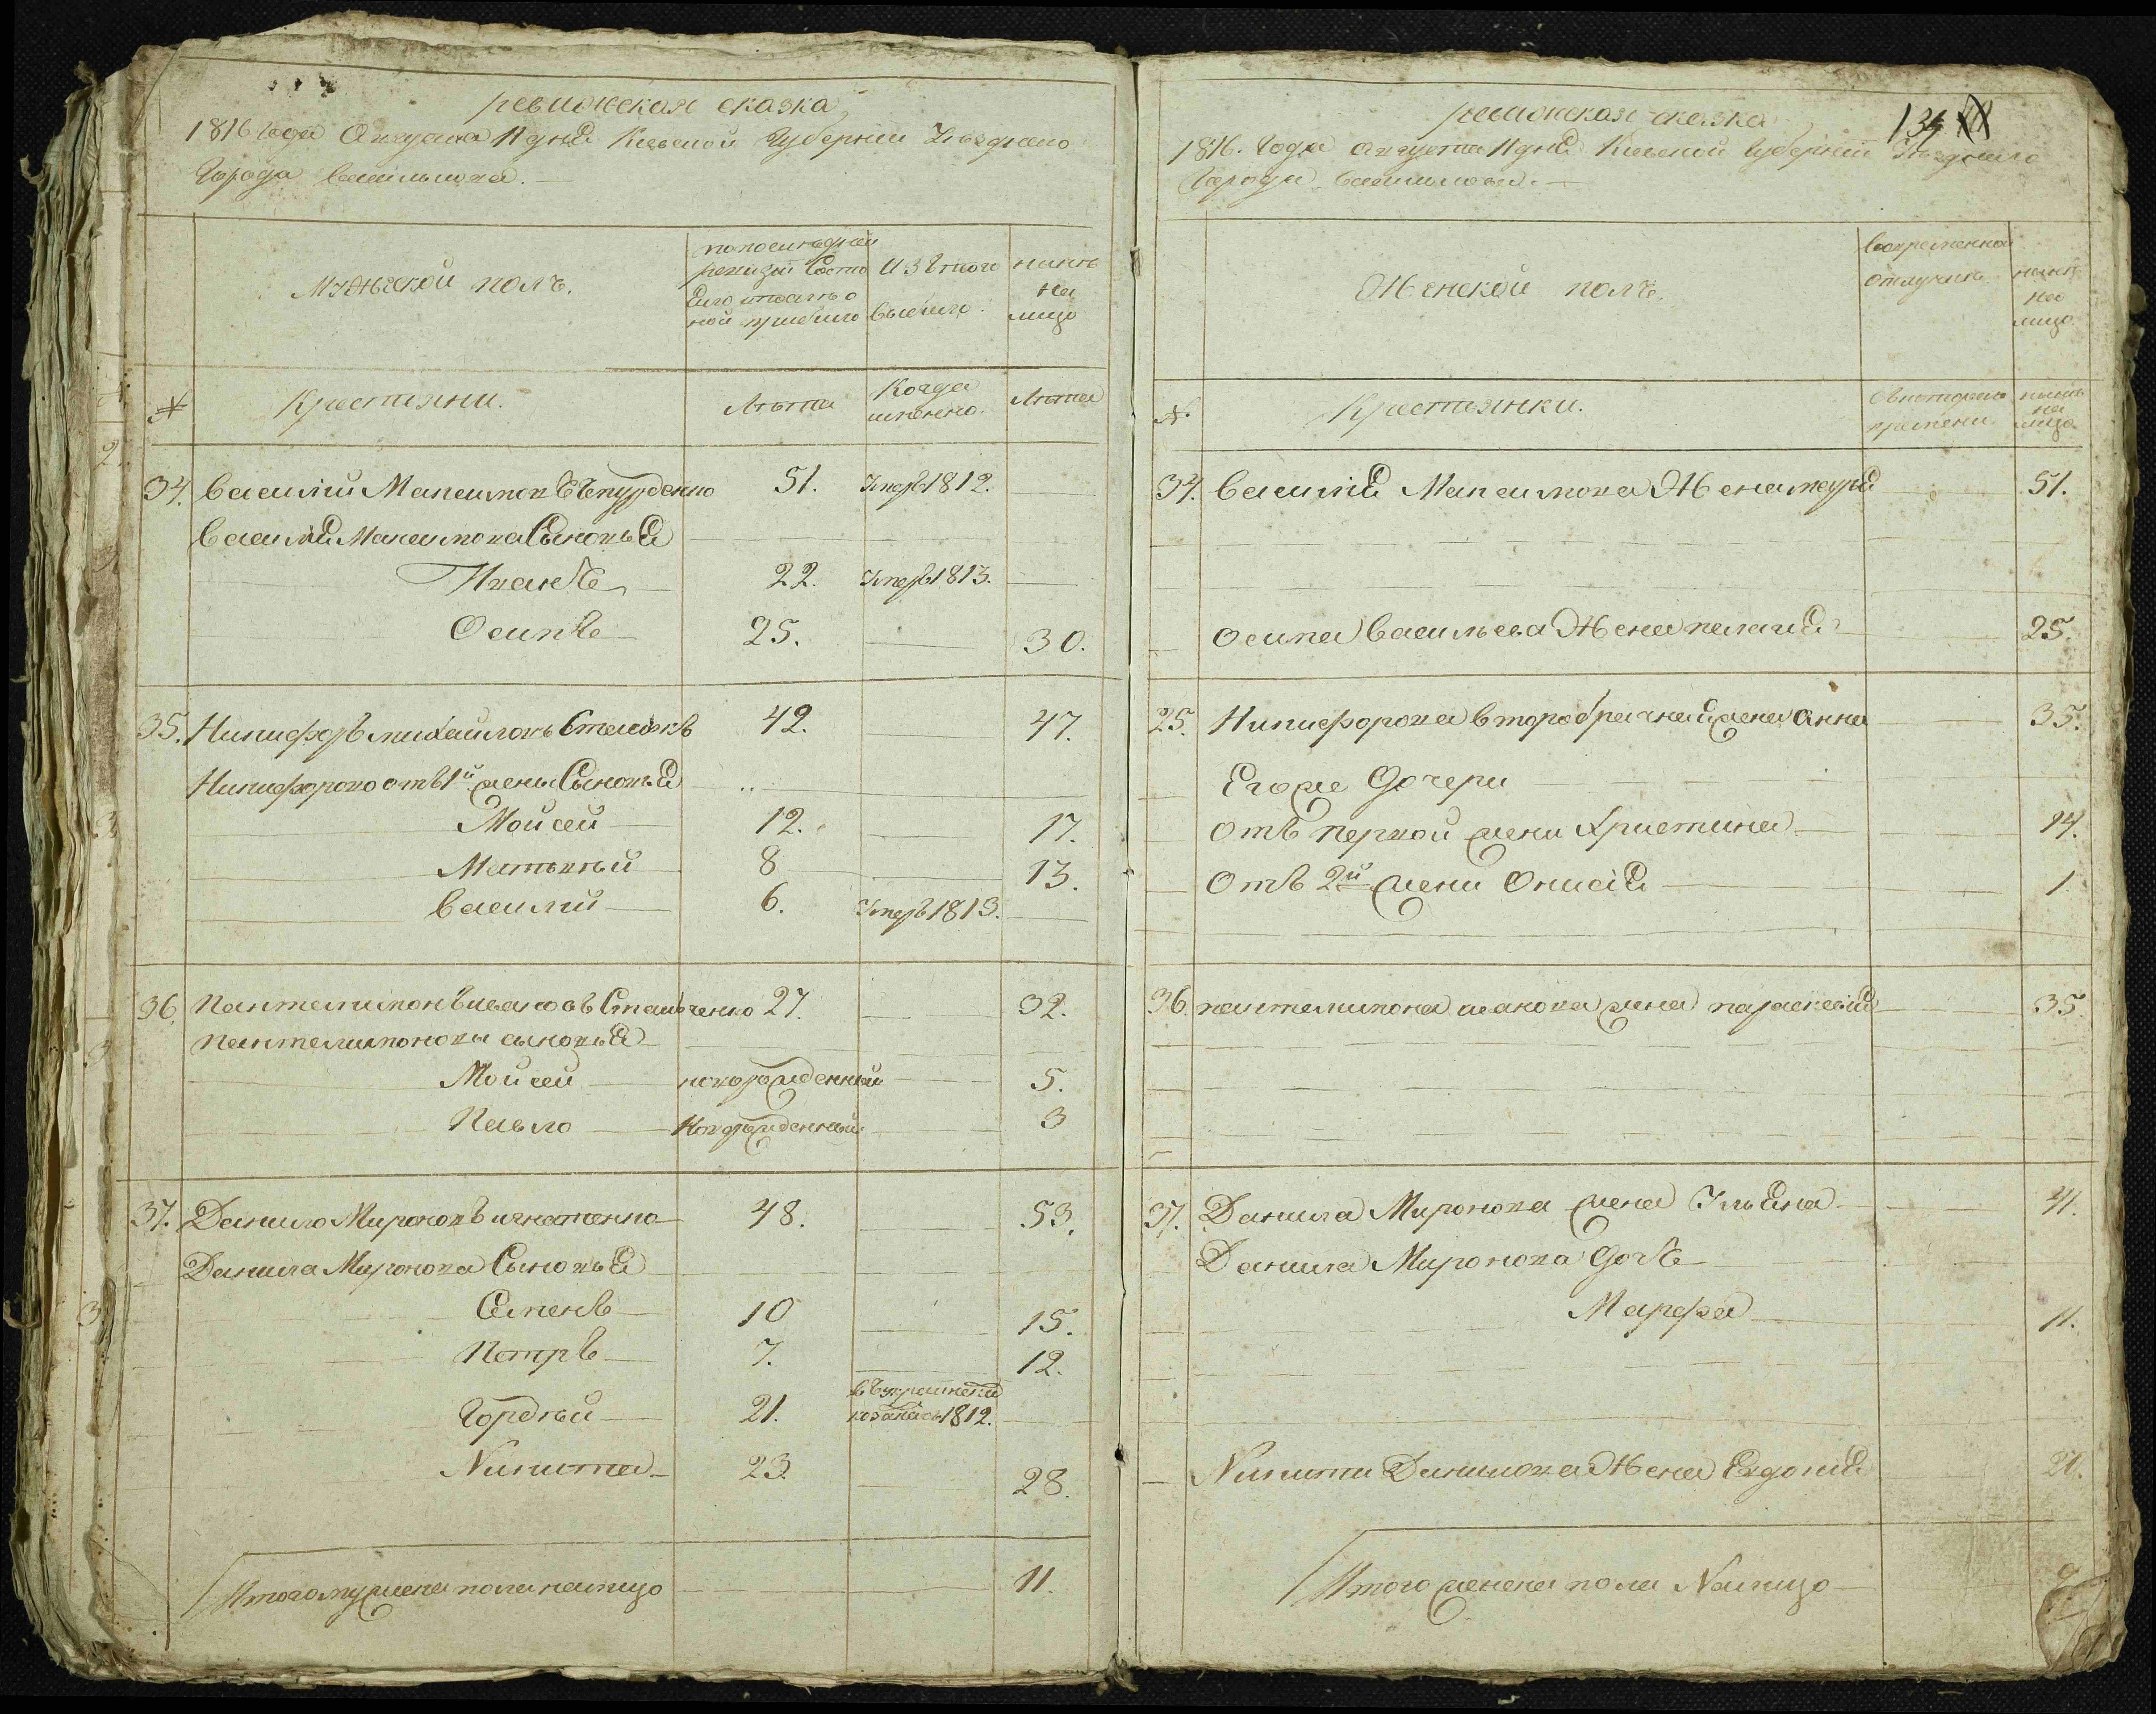 ревижская сказка
1816 года Августа 11 дня Киевской Губернии Уездного
Города Василькова.
Мужеской полъ.
по последней
ревизіи Состо
яло и после о
ной прибыло
Изътого
выбыло.
ныне
на
лицо
№
Крестьяни.
Лета
Когда
имянно.
Лета
34. Василий Максимовъ 51. Умеръ 1812.
Василия Максимова Сыновья
Иванъ 22. Умеръ 1813.
Осипъ 25. 30.
35. Никифоръ михайловъ 42. 47.
Никифорово отъ 1й жены Сыновья
Мойсей 12. 17.
Матьвей 8 13.
Василий 6. Умеръ 1813.
36. Пантелимонъ ивановъ 27. 32.
Пантелимоновы сыновья
Мойсей новорожденный 5.
Павло Новорожденный 3
37. Данило Мироновъ игнатенко 48. 53.
Данила Миронова Сыновья
Семенъ 10 15.
Петръ 7. 12.
Гордей 21. въ украинския козаки 1812.
Никита 23. 28.
Итого мужеска пола налицо 11.
ревижская сказка
134
1816. Года августа 11 дня Киевской Губернии Уездного
Города Василькова.
Женской полъ.
Вовременной
отлучке
ныне
на
лицо
№.
Крестьянки.
Скоторого
времени
ныне
на
лицо
34. Василия Максимова Жена мавра 51.
Осипа Васильева Жена пелагия 25.
25. Никифорова второбрачная жена анна 35.
Егоже Дочери
Отъ первой жени Христина 14.
Отъ 2й жени Онисія 1.
36. пантелимона иванова жена параскевия 35.
37. Данила Миронова жена Ульяна 41.
Данила Миронова дочь
Марфа 11.
Никити Данилова Жена Евдокия 21.
Итого женска пола Налицо 9